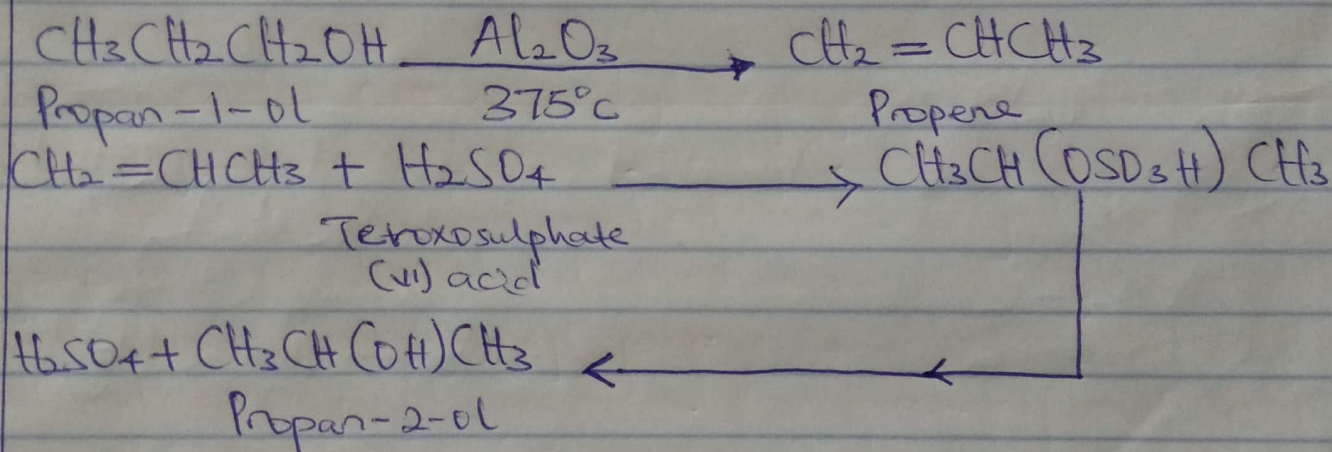 CH3CH2CH2OH Al2O3 CH2 = CHCH3
Propan-1-ol 375°C Propene
CH2 = CHCH3 + H2SO4 CH3CH(OSO3H)CH3
Tetroxosulphate
(vi) acid
H2SO4 + CH3CH(OH)CH3
Propan-2-ol